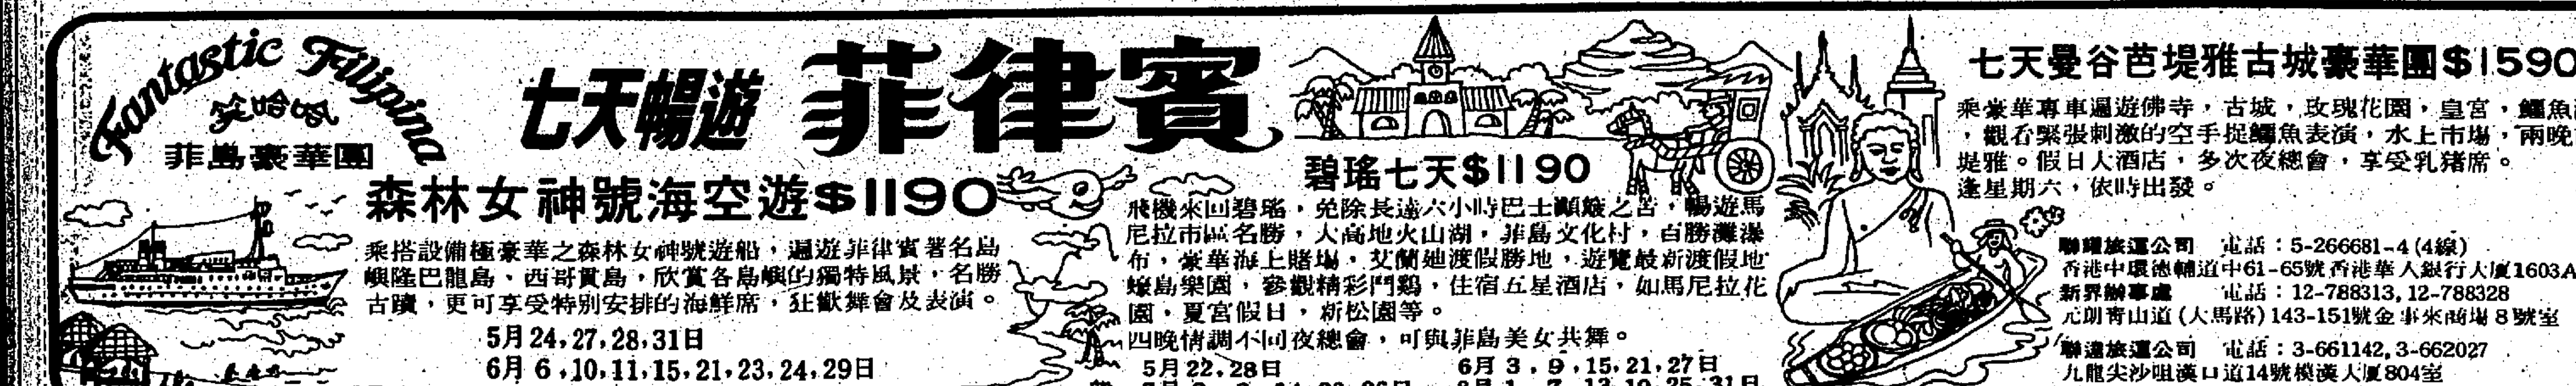 Fantastic Filipina
笑哈哈
菲島豪華團
七天暢遊 菲律賓
森林女神號海空遊$1190
乘搭設備極豪華之森林女神號遊船，遍遊菲律賓著名島
嶼隆巴龍島、西哥賈島，欣賞各島嶼的獨特風景，名勝
古蹟，更可享受特別安排的海鮮席，狂歡舞會及表演。
5月24,27,28,31日
6月6,10,11,15,21,23,24,29日
碧瑤七天$1190
飛機來回碧瑤，免除長達六小時巴士顛簸之苦，暢遊馬
尼拉市區名勝，大高地火山湖，菲島文化村，百勝灘瀑
布，豪華海上賭場，艾蘭廸渡假勝地，遊覽最新渡假地
蠔島樂園，參觀精彩鬥鷄，住宿五星酒店，如馬尼拉花
園，夏宮假日，新松園等。
四晚情調不同夜總會，可與菲島美女共舞。
5月22,28日
6月3,9,15,21,27日
七天曼谷芭堤雅古城豪華團$1590
乘豪華專車遍遊佛寺，古城，玫瑰花園，皇宮，鱷魚
，觀看緊張刺激的空手捉鱷魚表演，水上市場，兩晚
堤雅。假日大酒店，多次夜總會，享受乳猪席。
逢星期六，依時出發。
旅運公司 電話：5-266681-4(4線)
香港中環德輔道中61-65號香港華人銀行大廈1603A
新界辦事處 電話：12-788313,12-788328
元朗青山道(大馬路)143-151號金事來商場8號室
聯達旅運公司 電話：3-661142,3-662027
九龍尖沙咀漢口道14號模漢大厦804室